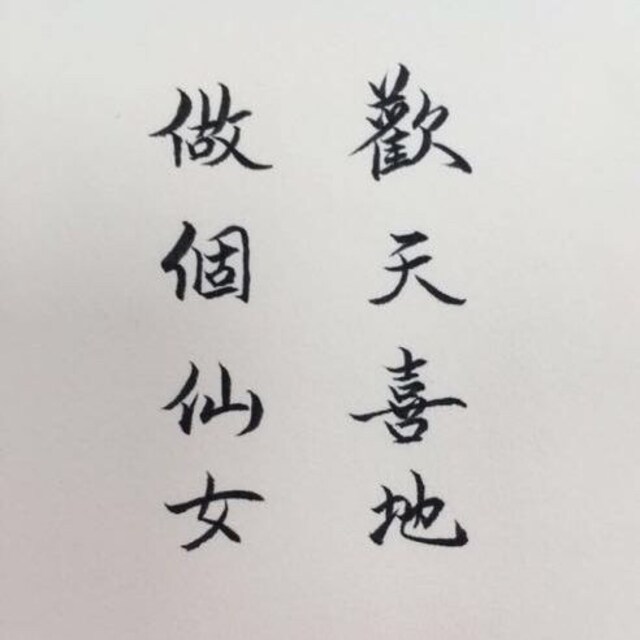 歡天喜地
做個仙女